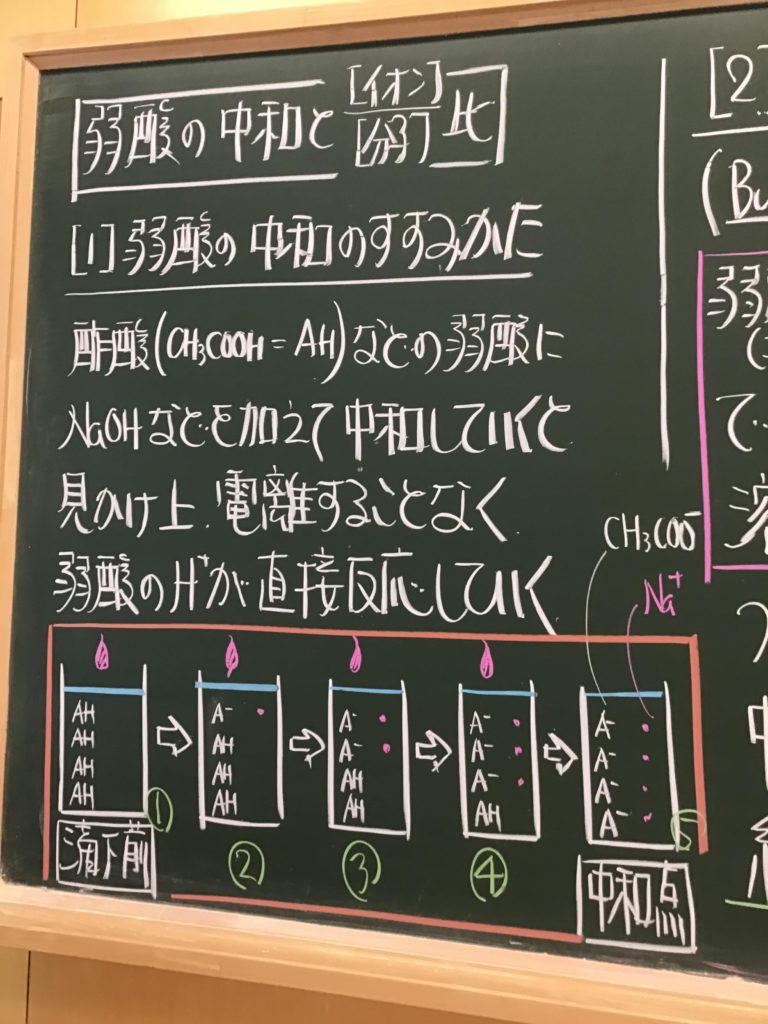 弱酸の中和と[イオン]/[分子]比
[1]弱酸の中和のすすみかた
酢酸(CH₃COOH=AH)などの弱酸に
NaOHなどを加えて中和していくと
見かけ上、電離することなく
弱酸のH⁺が直接反応していく
CH₃COO⁻
Na⁺
AH
AH
AH
AH
①
滴下前
A⁻
AH
AH
AH
②
A⁻
A⁻
AH
AH
③
A⁻
A⁻
A⁻
AH
④
A⁻
A⁻
A⁻
A⁻
⑤
中和点
[2]
(Bu
弱
て
溶
つ
中